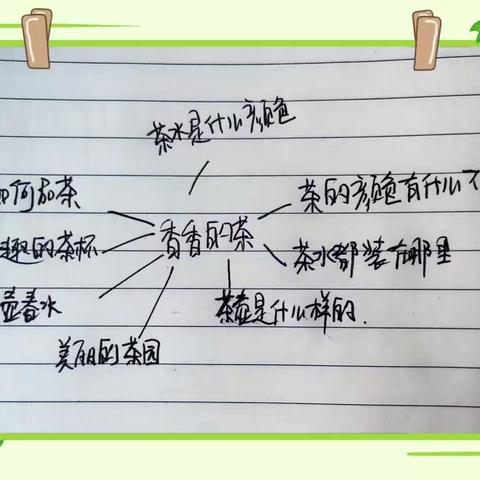 茶水是什么颜色
如何品茶
茶的颜色有什么不
香香的茶
趣的茶杯
茶水都装在哪里
壶春水
茶壶是什么样的.
美丽的茶园